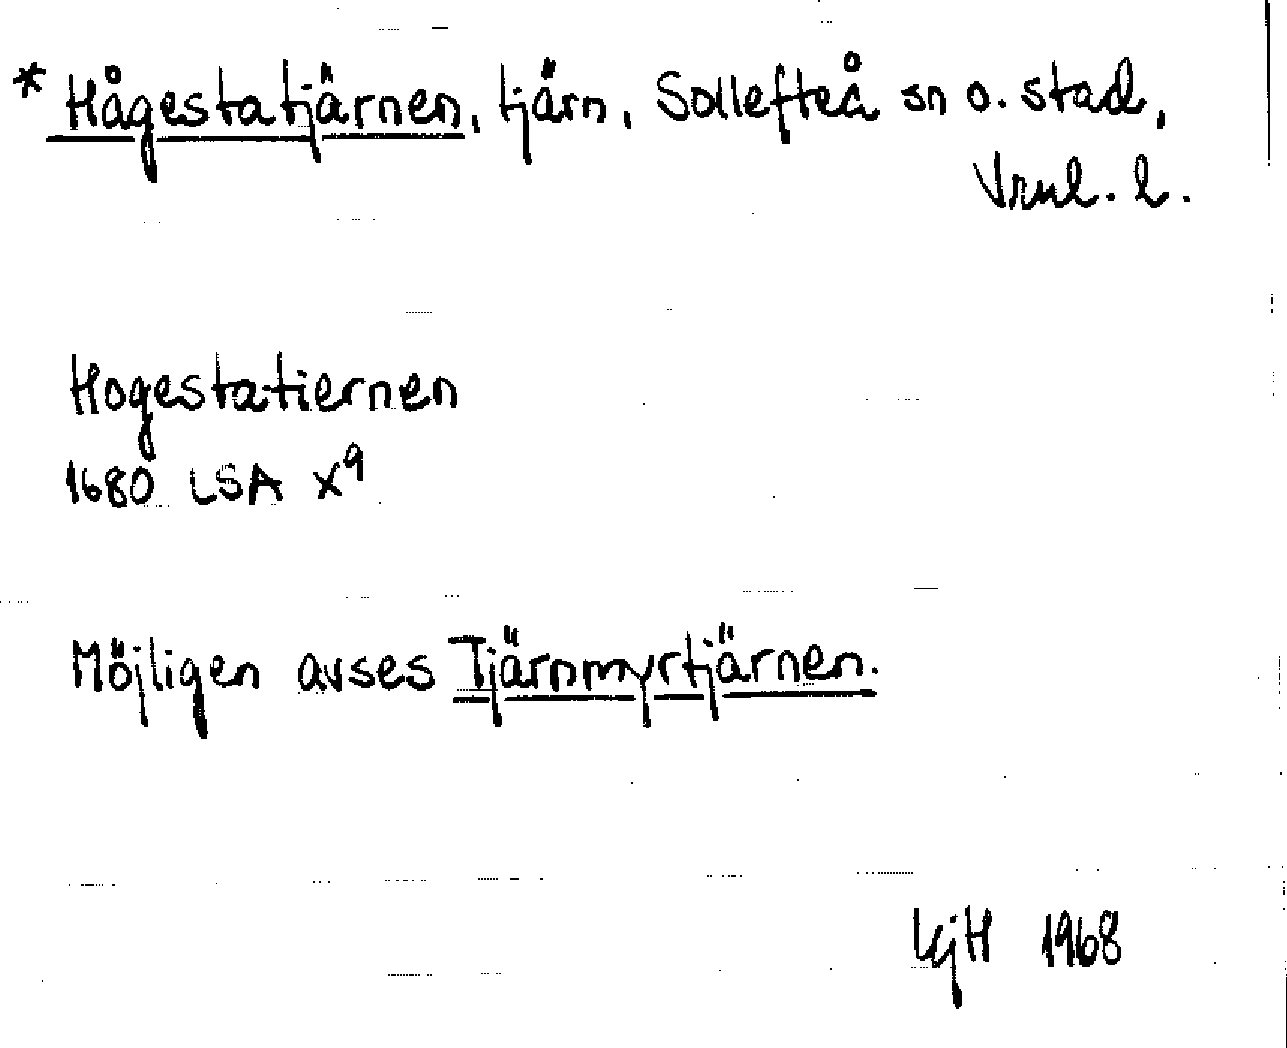 * Hågestatjärnen, tjärn, Sollefteå sn o. stad,
Vrnl. l.
Hogestatiernen
1680 LSA X⁹
Möjligen avses Tjärnmyrtjärnen.
KjH 1968